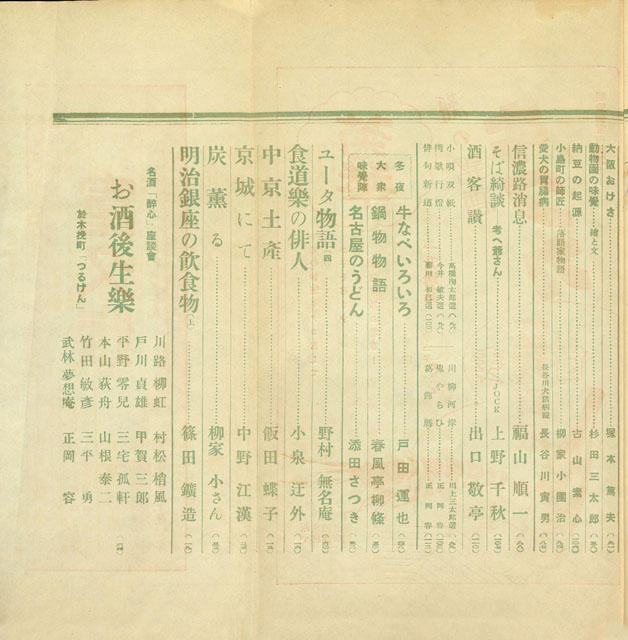 大阪おけさ 塚本篤夫
動物園の味覺 繪と文 杉田三太郎
納豆の起源 古山霊心
小島町の師匠 落語家物語 柳家小團治
愛犬の胃腸病 長谷川犬猫病院 長谷川寅男
信濃路消息 福山順一
そば綺談 考へ爺さん JOCK 上野千秋
酒客讃 出口敬亭
小唄双紙 高橋掬太郎選
川柳河岸 川上三太郎選
街歌行燈 今井敏夫選
鬼やらひ 正岡容
俳句新道
葛飾暦 正岡容
冬夜 大衆 味覺陣
牛なべいろいろ 戸田運也
鍋物物語 春風亭柳條
名古屋のうどん 添田さつき
ユータ物語 四 野村無名庵
食道樂の俳人 小泉迂外
中京土産 飯田蝶子
京城にて 中野江漢
炭薫る 柳家小さん
明治銀座の飲食物(上) 篠田鑛造
名酒「醉心」座談會
お酒後生樂
於木挽町「つるげん」
川路柳虹 村松梢風
戸川貞雄 甲賀三郎
平野零兒 三宅孤軒
本山荻舟 山根泰二
竹田敏彦 三平勇
武林夢想庵 正岡容